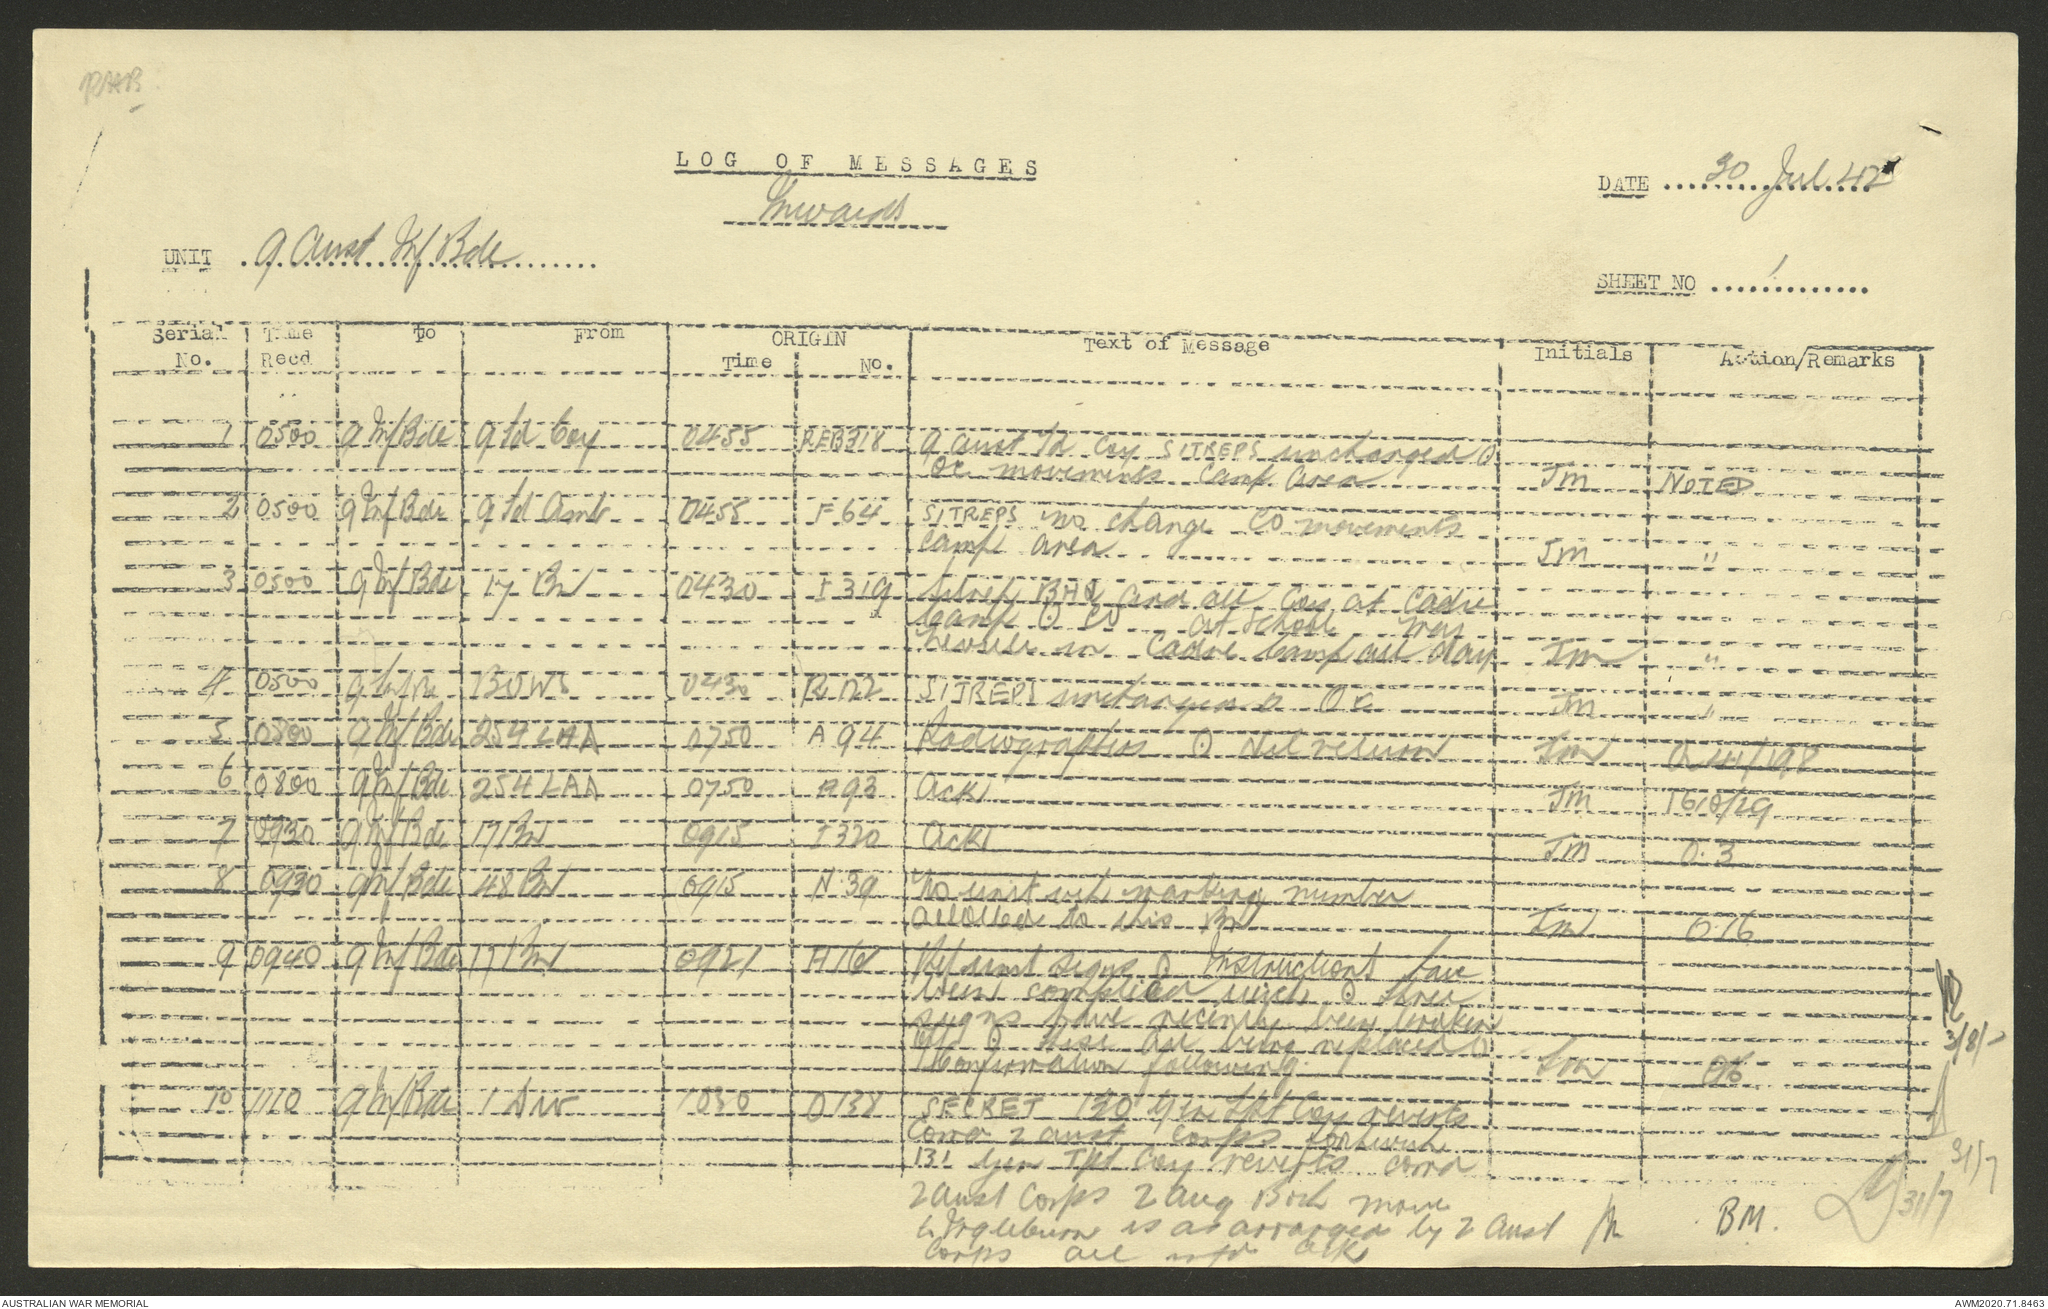 LOG OF MESSAGES
Inwards
DATE 30 Jul 42
UNIT 9 Aust Inf Bde
SHEET NO 1
Serial No. Time Recd To From ORIGIN Time No. Text of Message Initials Action/Remarks
1 0500 9 Inf Bde 9 Fd Coy 0455 REB318 9 Aust Fd Coy SITREPS unchanged O
OC movements Camp Area JM NOTED
2 0500 9 Inf Bde 9 Fd Amb 0455 F64 SITREPS no change CO movements
camp area JM "
3 0500 9 Inf Bde 17 Bn 0430 I319 Sitrep BHQ and all Coy at Cadre
Camp O CO at School
in Cadre Camp all day JM "
4 0500 9 Inf Bde 0430 SITREPS unchanged O OC JM "
5 0800 9 Inf Bde 254 LAA 0750 A94 Radiographers O Nil return JM
6 0800 9 Inf Bde 254 LAA 0750 A93 Ack JM
7 0930 9 Inf Bde 17 Bn 0915 I320 Ack JM O.3
8 0930 9 Inf Bde 48 Bn 0915 N39 No unit veh marking number
allotted to this Bn JM O16
9 0940 9 Inf Bde 17 Bn 0921 Ref unit signs O Instructions have
been complied with O three
signs have recently been broken
off O these are being replaced O
Confirmation following JM
3/8/
10 1110 9 Inf Bde 1 Div 1030 SECRET 120 Gen Tpt Coy reverts
Comd 2 Aust Corps forthwith
131 Gen Tpt Coy reverts comd
2 Aust Corps 2 Aug Both move
to Ingleburn is as arranged by 2 Aust JM BM.
Corps all info ack
31/7
31/7
AUSTRALIAN WAR MEMORIAL
AWM2020.71.8463